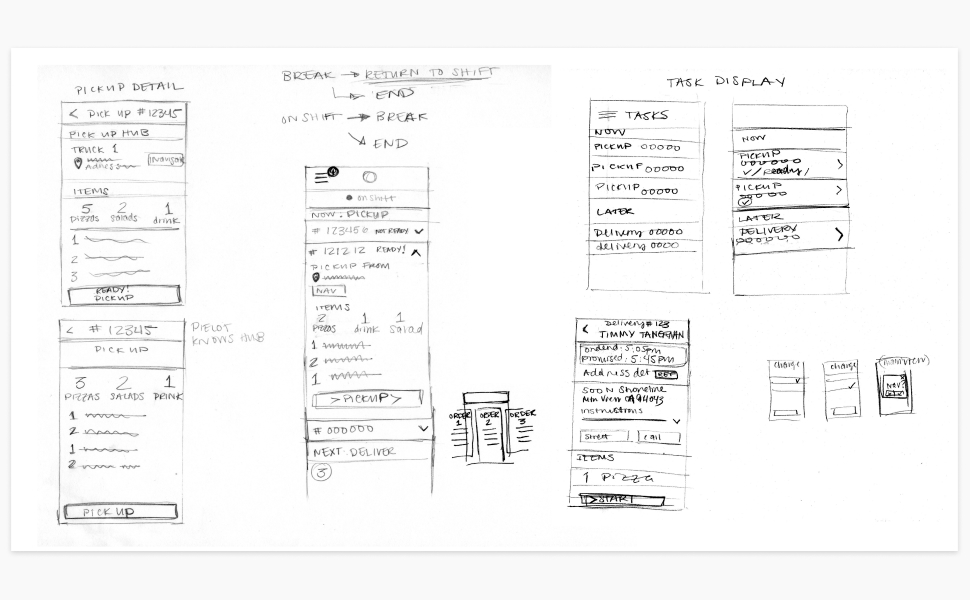 PICKUP DETAIL
< PICK UP #12345
PICK UP HUB
TRUCK 1
Address
ITEMS
5 2 1
pizzas salads drink
1
2
3
READY!
PICKUP
< # 12345
PICK UP
3 2 1
PIZZAS SALADS DRINK
1
2
1
2
PICKUP
KNOWS HUB
BREAK → RETURN TO SHIFT
END
ON SHIFT → BREAK
END
on shift
NOW: PICKUP
# 123456 NOT READY
# 121212 READY!
PICKUP FROM
NAV
ITEMS
2 1 1
pizzas drink salad
1
2
1
> PICKUP >
# 000000
NEXT: DELIVER
3
ORDER 1
ORDER 2
ORDER 3
TASK DISPLAY
TASKS
NOW
PICKUP 00000
PICKUP 00000
PICKUP 00000
LATER
Delivery 00000
delivery 0000
NOW
PICKUP
000000
Ready
>
PICKUP
00000
>
LATER
DELIVERY
000000
>
< Delivery # 123
TIMMY
ordered: 5:05pm
Promised: 5:45pm
500 N Shoreline
Mtn View CA 94043
instructions
call
ITEMS
1 Pizza
> START
charge
charge
NAV?